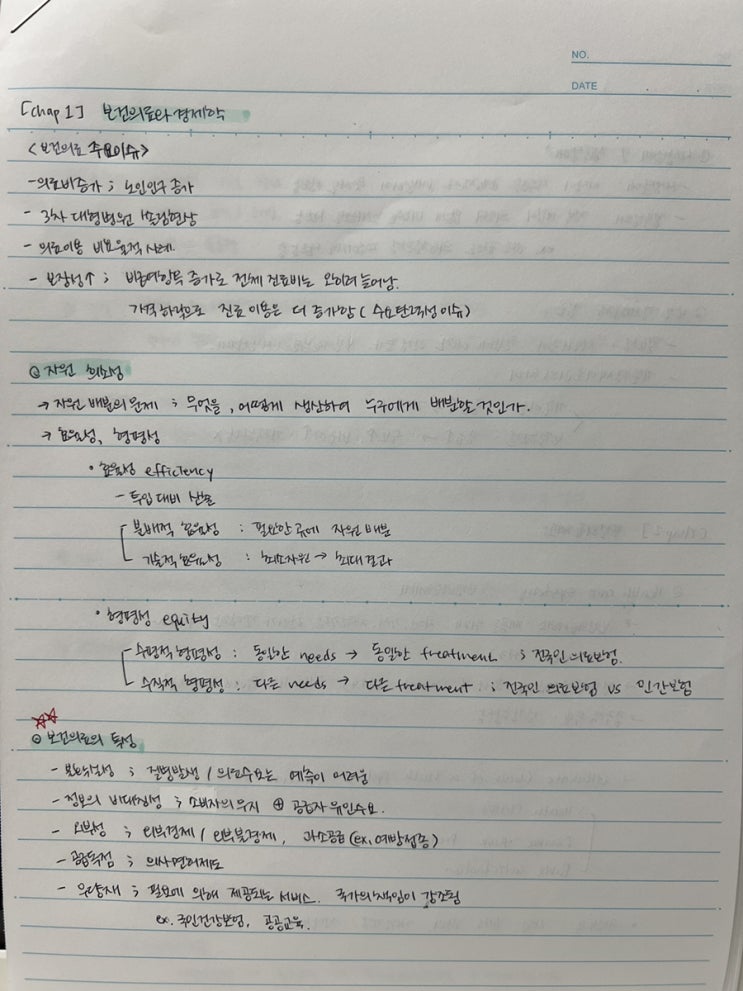 NO.
DATE
[Chap 1] 보건의료와 경제학
<보건의료 주요이슈>
- 의료비증가 ; 노인인구 증가
- 3차 대형병원 쏠림현상
- 의료이용 비효율적 사례.
- 보장성↑ ; 비급여항목 증가로 전체 진료비는 오히려 늘어남.
개혁하적으로 진료이용은 더 증가함 ( 수요탄력성 이슈)
◎ 자원 희소성
→ 자원배분의 문제 ; 무엇을, 어떻게 생산하여 누구에게 배분할 것인가.
→ 효율성, 형평성
• 효율성 efficiency
- 투입 대비 산출
분배적 효율성 : 필요한 곳에 자원 배분
기술적 효율성 : 최소자원 → 최대결과
• 형평성 equity
수평적 형평성 : 동일한 needs → 동일한 treatment ; 전국민 의료보험.
수직적 형평성 : 다른 needs → 다른 treatment ; 전국민 의료보험 vs 민간보험
◎ 보건의료의 특성
- 불확실성 ; 질병발생 / 의료수요는 예측이 어려움
- 정보의 비대칭성 ; 소비자의 무지 ⊕ 공급자 유인수요.
- 외부성 ; 외부경제 / 외부불경제, 과소공급 (ex. 예방접종)
- 공급독점 ; 의사면허제도
- 우량재 ; 필요에 의해 제공되는 서비스. 국가의 책임이 강조됨
ex. 국민건강보험, 공공교육.